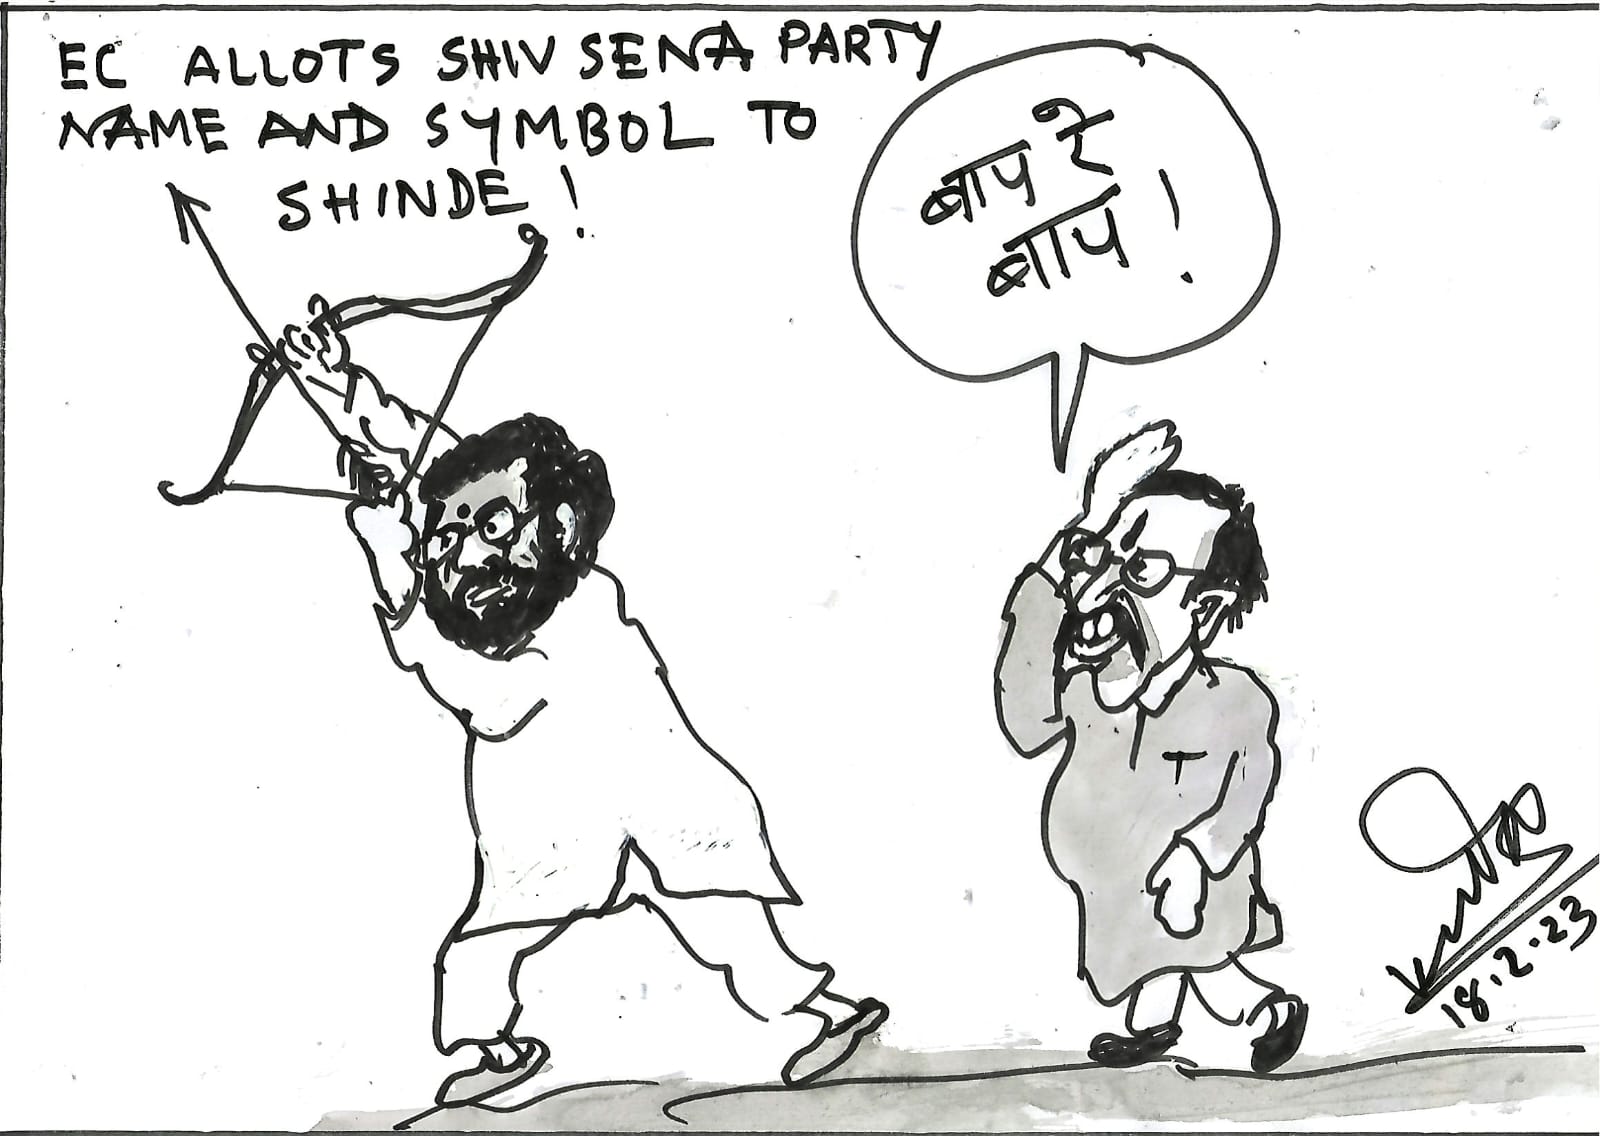 EC ALLOTS SHIV SENA PARTY
NAME AND SYMBOL TO
SHINDE!
बाप रे
बाप!
T
18.2.23